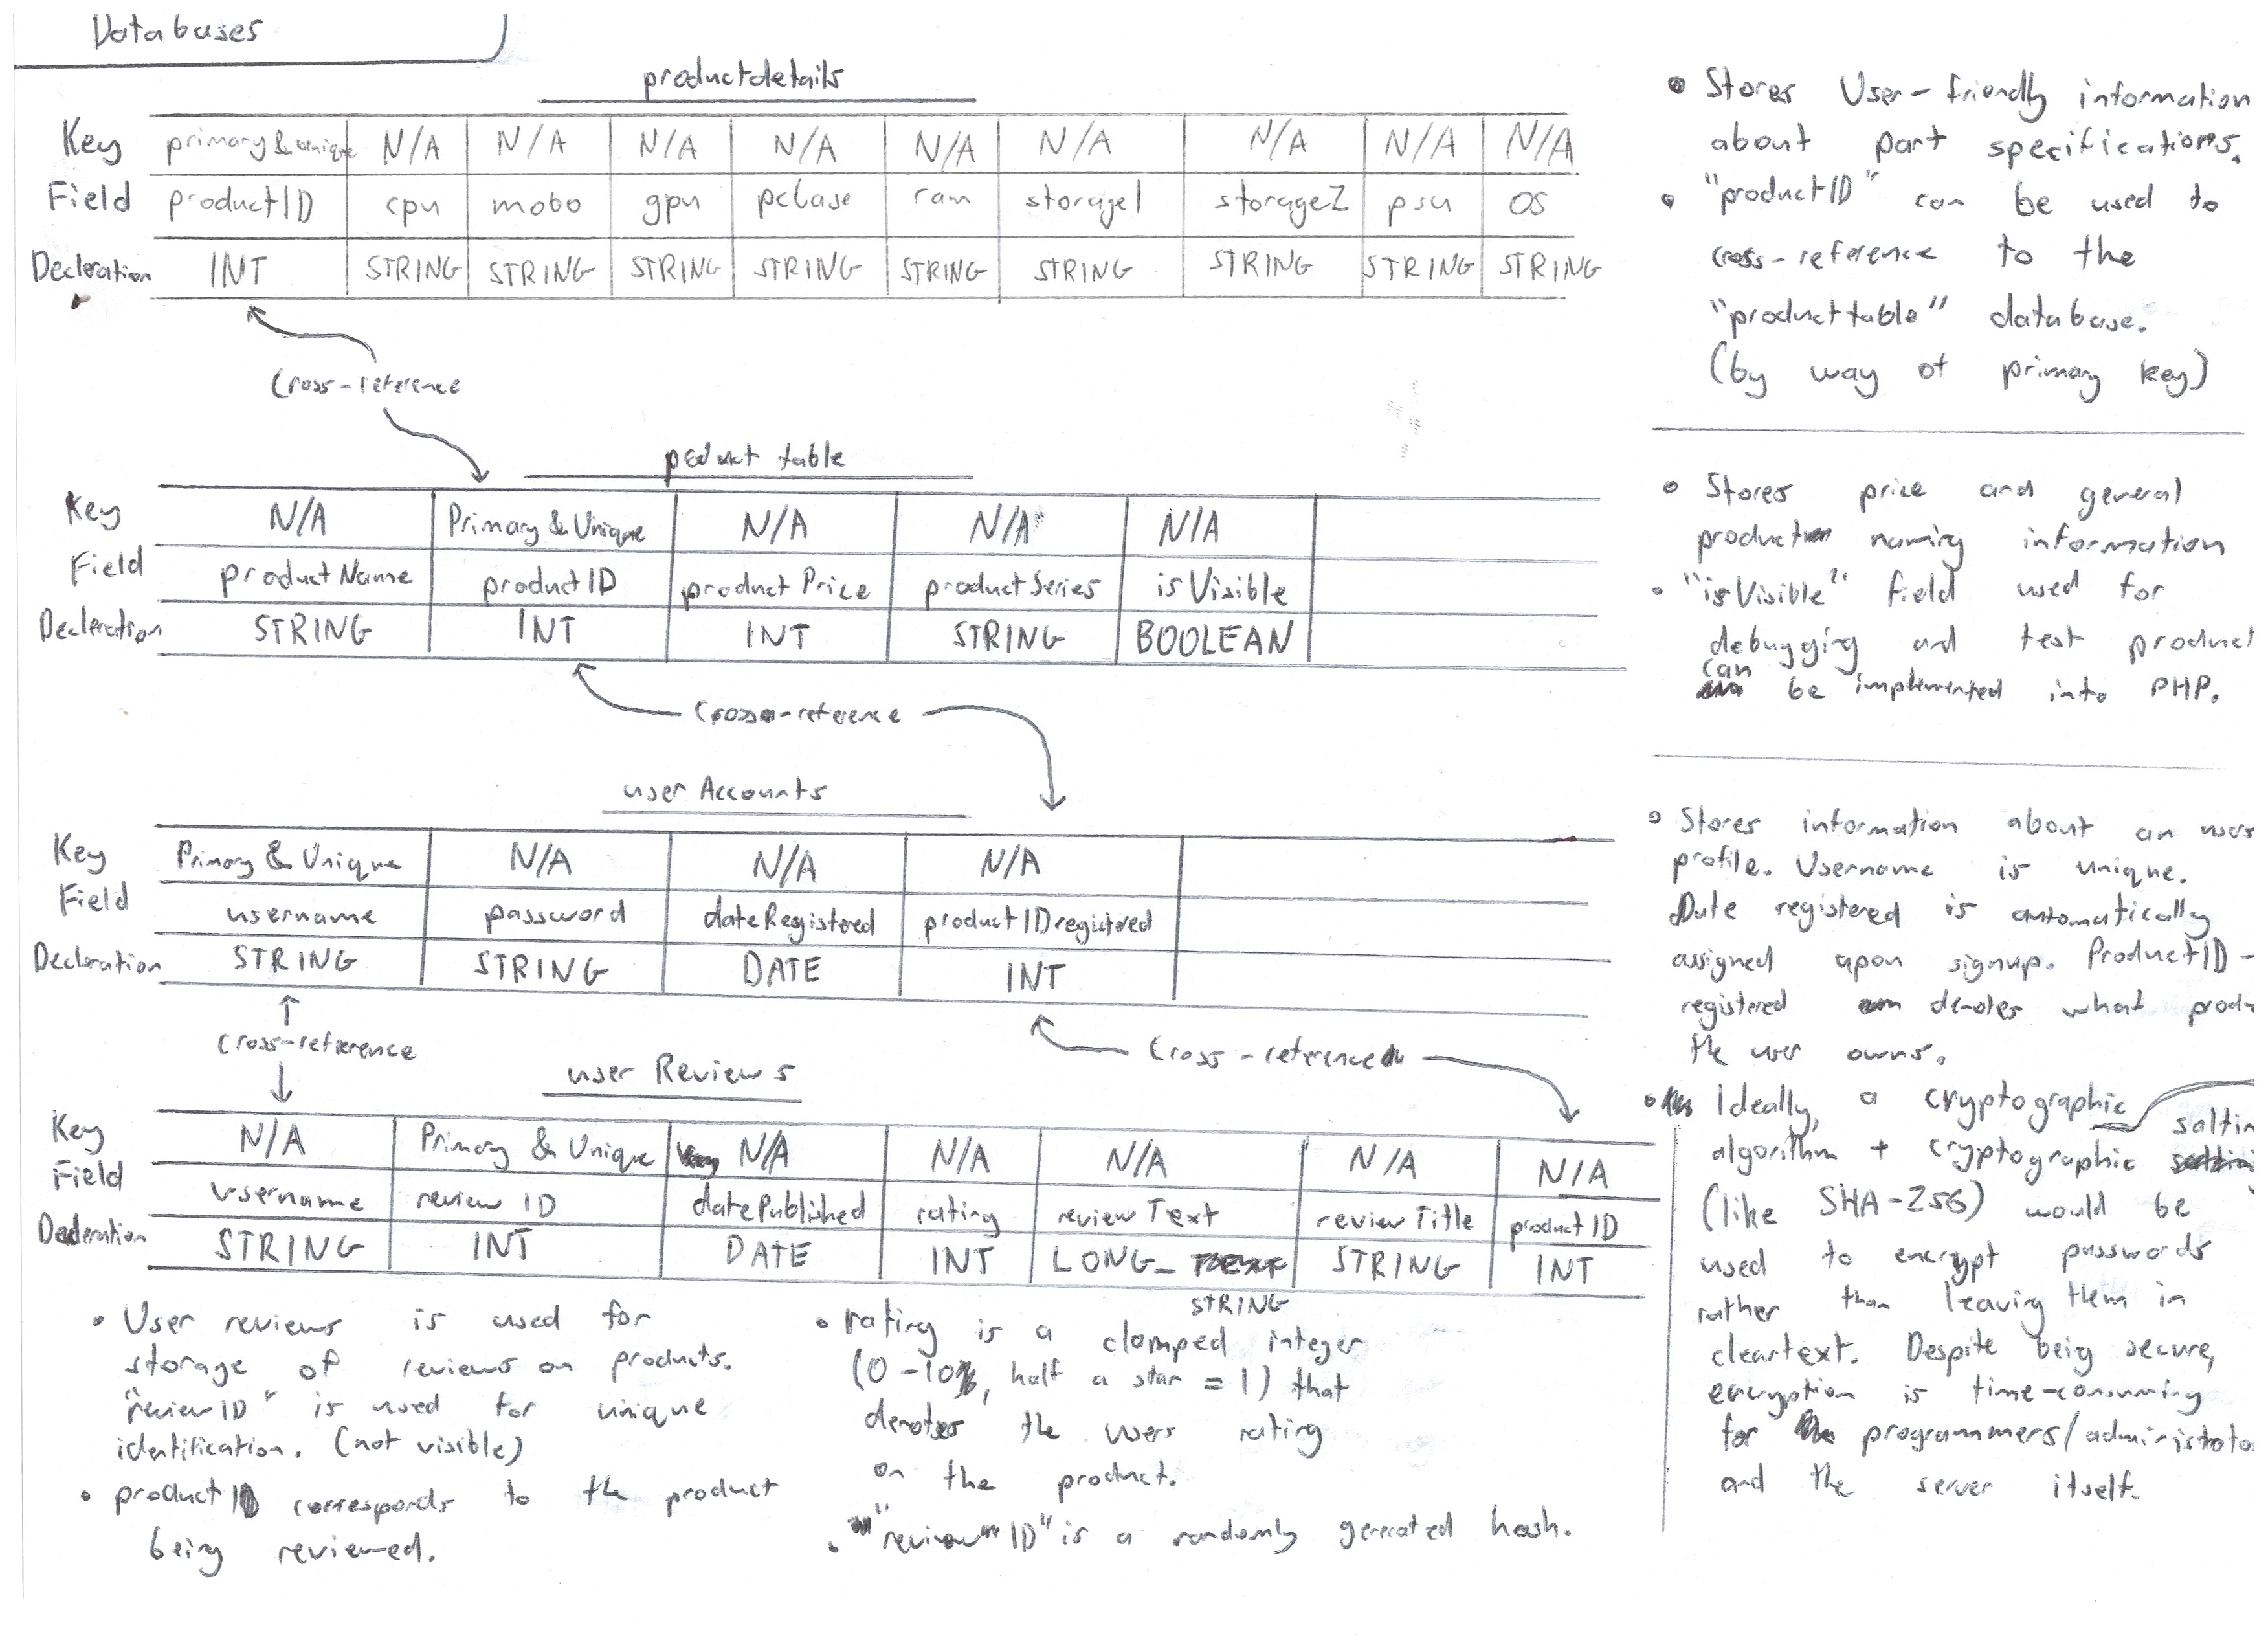 Databases
productdetails
Key primary & unique N/A N/A N/A N/A N/A N/A N/A N/A N/A
Field productID cpu mobo gpu pcbase ram storage1 storage2 psu OS
Decleration INT STRING STRING STRING STRING STRING STRING STRING STRING STRING
Cross-reference
product table
Key N/A Primary & Unique N/A N/A N/A
Field productName productID productPrice productSeries isVisible
Decleration STRING INT INT STRING BOOLEAN
Cross-reference
user Accounts
Key Primary & Unique N/A N/A N/A
Field username password dateRegistered productIDregistered
Decleration STRING STRING DATE INT
Cross-reference
Cross-reference
user Reviews
Key N/A Primary & Unique N/A N/A N/A N/A N/A
Field username review ID datePublished rating reviewText reviewTitle productID
Decleration STRING INT DATE INT LONG_ STRING INT
STRING
• User reviews is used for
storage of reviews on products.
"reviewID" is used for unique
identification. (not visible)
• productID corresponds to the product
being reviewed.
• rating is a clamped integer
(0-10, half a star = 1) that
denotes the users rating
on the product.
• "review ID" is a randomly generated hash.
• Stores User-friendly information
about part specifications.
• "productID" can be used to
cross-reference to the
"producttable" database.
(by way of primary key)
• Stores price and general
product naming information
• "isVisible" field used for
debugging and test product
can be implemented into PHP.
• Stores information about an users
profile. Username is unique.
Date registered is automatically
assigned apon signup. ProductID-
registered denotes what produ
the user owns.
• Ideally, a cryptographic
algorithm + cryptographic saltin
(like SHA-256) would be
used to encrypt passwords
rather than leaving them in
cleartext. Despite being secure,
encryption is time-consuming
for programmers/administrato
and the server itself.